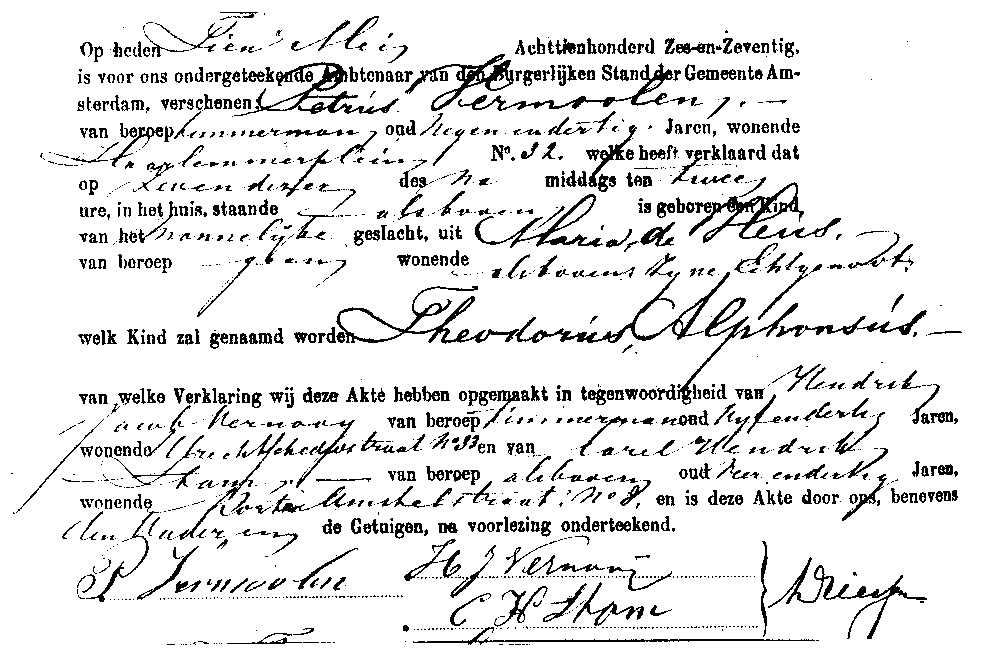 Op heden Tien Mei Achttienhonderd Zes-en-Zeventig,
is voor ons ondergeteekende Ambtenaar van den Burgerlijken Stand der Gemeente Am-
sterdam, verschenen: Petrus Vermoolen, —
van beroep timmerman, oud Negen en dertig Jaren, wonende
Haarlemmerplein No. 32. welke heeft verklaard dat
op Zeven dezer des Na middags ten twee
ure, in het huis, staande alsboven is geboren een Kind
van het mannelijke geslacht, uit Maria de Heus. —
van beroep geen wonende alsboven zyne Echtgenoote
welk Kind zal genaamd worden Theodorus, Alphonsus. —
van welke Verklaring wij deze Akte hebben opgemaakt in tegenwoordigheid van Hendrik
Jacob Vernooy van beroep timmerman oud Vyf en dertig Jaren,
wonende Utrechtschedwarsstraat No 33 en van Carel Hendrik
Stam — van beroep alsboven oud Vier en dertig Jaren,
wonende Korte Amstelstraat No 8, en is deze Akte door ons, benevens
den Vader en de Getuigen, na voorlezing onderteekend.
P. Vermoolen H J Vernooy
C H Stam